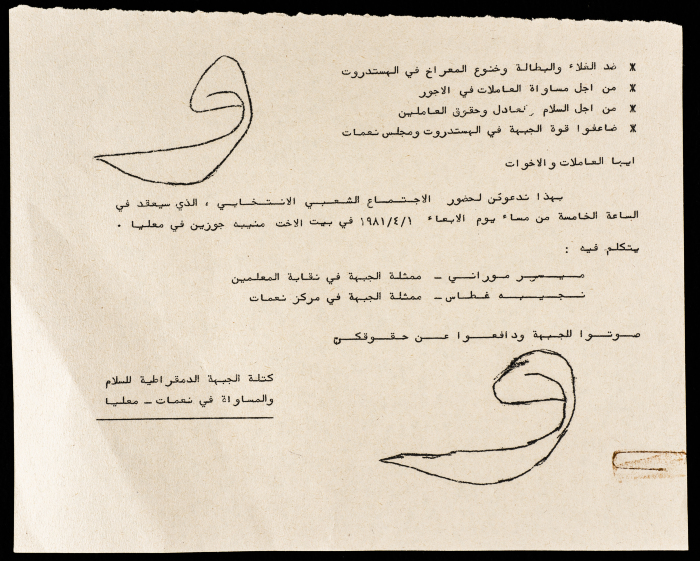 و
* ضد الغلاء والبطالة وخنوع المعراخ في الهستدروت
* من اجل مساواة العاملات في الاجور
* من اجل السلام العادل وحقوق العاملين
* ضاعفوا قوة الجبهة في الهستدروت ومجلس نعمات
ايها العاملات والاخوات
بهذا ندعوكن لحضور الاجتماع الشعبي الانتخابي ، الذي سيعقد في
الساعة الخامسة من مساء يوم الابعاء ١٩٨١/٤/١ في بيت الاخت منيبه جوزين في معليا .
يتكلم فيه :
ميسر موراني - ممثلة الجبهة في نقابة المعلمين
نجيبه غطاس - ممثلة الجبهة في مركز نعمات
صوتوا للجبهة ودافعوا عن حقوقكن
و
كتلة الجبهة الدمقراطية للسلام
والمساواة في نعمات - معليا